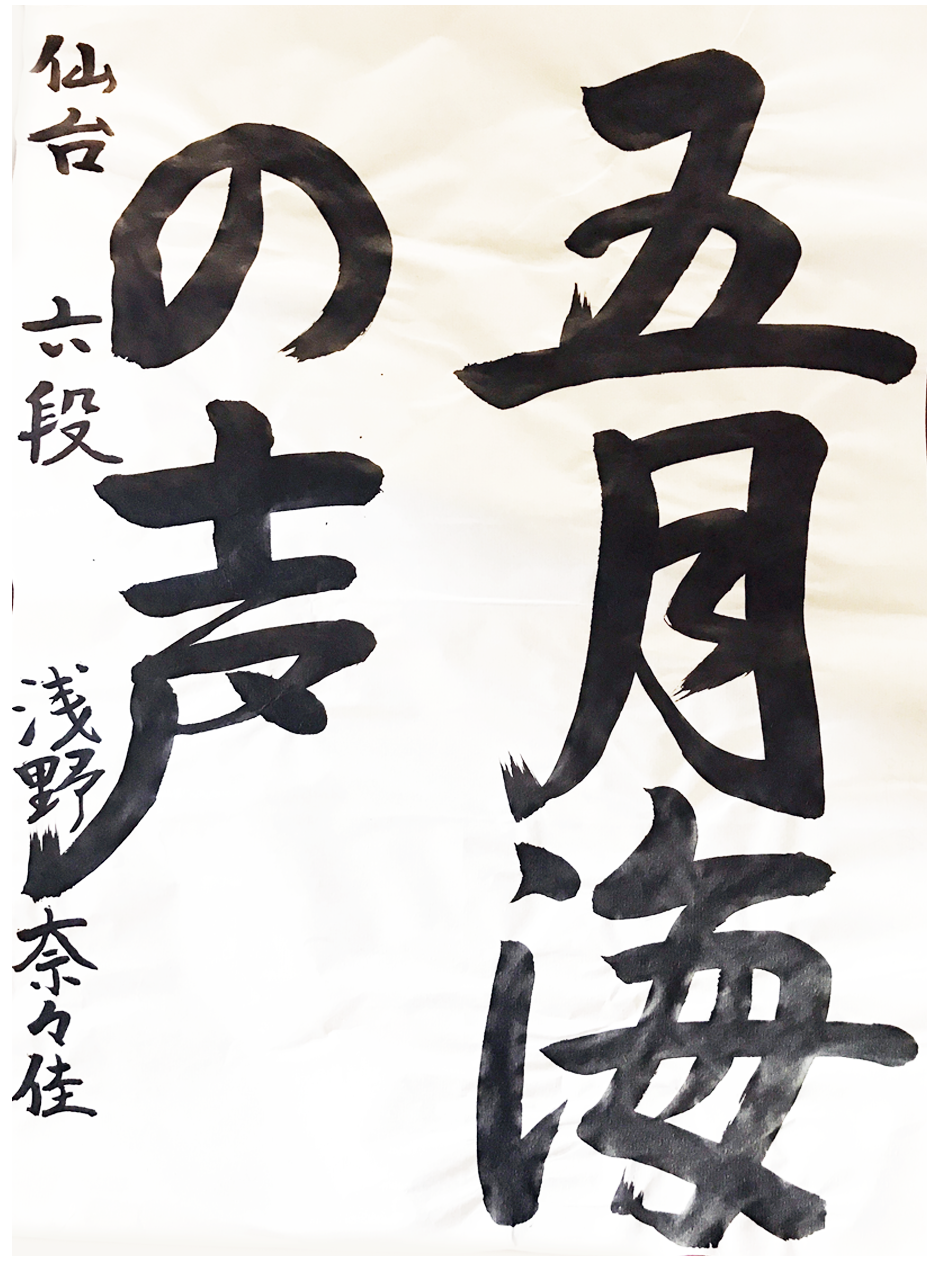 五月海
の声
仙台 六段 浅野奈々佳